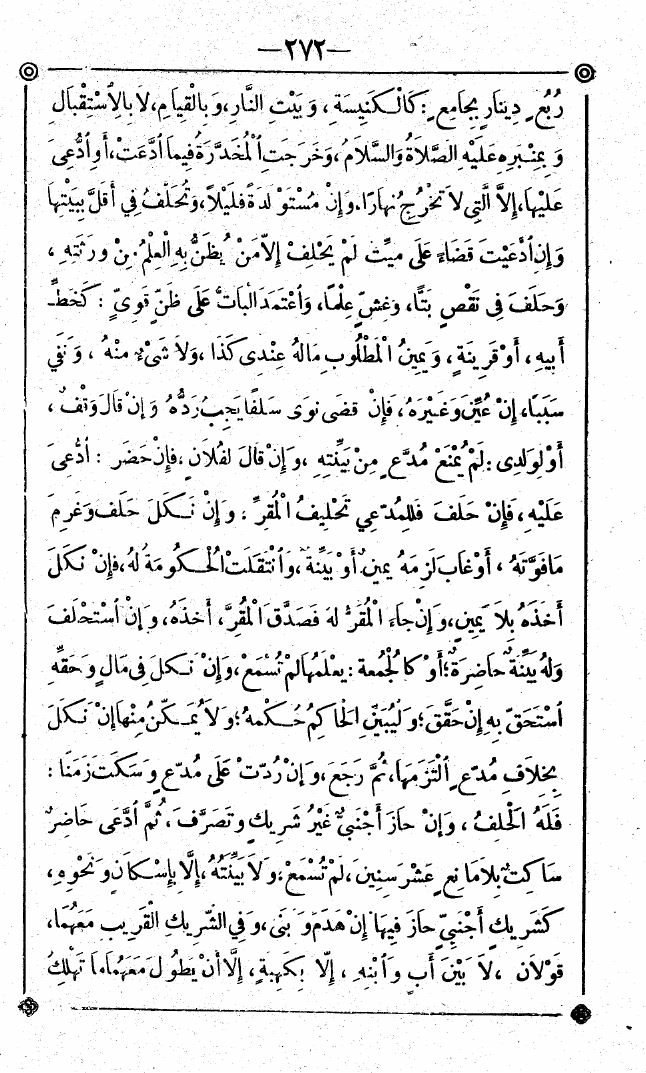 —٢٧٢—
رُبُعِ دِينَارٍ بِجَامِعٍ : كَالْكَنِيسَةِ ، وَبَيْتِ النَّارِ ، وَبِالْقِيَامِ ، لَا بِالِاسْتِقْبَالِ
وَبِمِنْبَرِهِ عَلَيْهِ الصَّلَاةُ وَالسَّلَامُ ، وَخَرَجَتِ الْمُخَدَّرَةُ فِيمَا ادَّعَتْ ، أَوِ ادُّعِىَ
عَلَيْهَا ، إِلَّا الَّتِى لَا تَخْرُجُ نَهَارًا . وَإِنْ مُسْتَوْلَدَةً فَلَيْلًا ، وَتُحَلَّفُ فِى أَقَلَّ بِبَيْتِهَا
وَإِنِ ادَّعَيْتَ قَضَاءً عَلَى مَيِّتٍ لَمْ يَحْلِفْ إِلَّا مَنْ يُظَنُّ بِهِ الْعِلْمُ . مِنْ وَرَثَتِهِ ،
وَحَلَفَ فِى نَقْصٍ بَتًّا ، وَغِشٍّ عِلْمًا ، وَاعْتَمَدَ الْبَاتُّ عَلَى ظَنٍّ قَوِىٍّ : كَخَطِّ
أَبِيهِ ، أَوْ قَرِينَةٍ ، وَيَمِينُ الْمَطْلُوبِ مَالَهُ عِنْدِى كَذَا ، وَلَا شَىْءَ مِنْهُ ، وَنَفَى
سَبَبًا ، إِنْ عُيِّنَ وَغَيْرَهُ ، فَإِنْ قَضَى نَوَى سَلَفًا يَجِبُ رَدُّهُ وَإِنْ قَالَ وَقْفٌ ،
أَوْ لِوَلَدِى : لَمْ يُمْنَعْ مُدَّعٍ مِنْ بَيِّنَتِهِ ، وَإِنْ قَالَ لِفُلَانٍ ، فَإِنْ حَضَرَ : ادُّعِىَ
عَلَيْهِ ، فَإِنْ حَلَفَ فَلِلْمُدَّعِى تَحْلِيفُ الْمُقِرِّ : وَإِنْ نَكَلَ حَلَفَ وَغَرِمَ
مَا فَوَّتَهُ ، أَوْ غَابَ لَزِمَهُ يَمِينٌ أَوْ بَيِّنَةٌ ، وَانْتَقَلَتِ الْحُكُومَةُ لَهُ ، فَإِنْ نَكَلَ
أَخَذَهُ بِلَا يَمِينٍ ، وَإِنْ جَاءَ الْمُقَرُّ لَهُ فَصَدَّقَ الْمُقِرَّ ، أَخَذَهُ ، وَإِنِ اسْتَحْلَفَ
وَلَهُ بَيِّنَةٌ حَاضِرَةٌ ؛ أَوْ كَالْجُمُعَةِ : يَعْلَمُهَا لَمْ تُسْمَعْ ، وَإِنْ نَكَلَ فِى مَالٍ وَحَقِّهِ
اسْتَحَقَّ بِهِ إِنْ حَقَّقَ ؛ وَلْيُبَيِّنِ الْحَاكِمُ حُكْمَهُ ؛ وَلَا يُمَكَّنُ مِنْهَا إِنْ نَكَلَ
بِخِلَافِ مُدَّعٍ الْتَزَمَهَا ، ثُمَّ رَجَعَ ، وَإِنْ رُدَّتْ عَلَى مُدَّعٍ وَسَكَتَ زَمَنًا :
فَلَهُ الْحَلِفُ ، وَإِنْ حَازَ أَجْنَبِىٌّ غَيْرُ شَرِيكٍ وَتَصَرَّفَ ، ثُمَّ ادَّعَى حَاضِرٌ
سَاكِتٌ بِلَا مَانِعٍ عَشْرَ سِنِينَ ، لَمْ تُسْمَعْ ؛ وَلَا بَيِّنَتُهُ ، إِلَّا بِإِسْكَانٍ وَنَحْوِهِ ،
كَشَرِيكٍ أَجْنَبِىٍّ حَازَ فِيهَا إِنْ هَدَمَ وَبَنَى ، وَفِى الشَّرِيكِ الْقَرِيبِ مَعَهُمَا ،
قَوْلَانِ ، لَا بَيْنَ أَبٍ وَابْنِهِ ، إِلَّا بِكَهِبَةٍ ، إِلَّا أَنْ يَطُولَ مَعَهُمَا مَا تَهْلِكُ